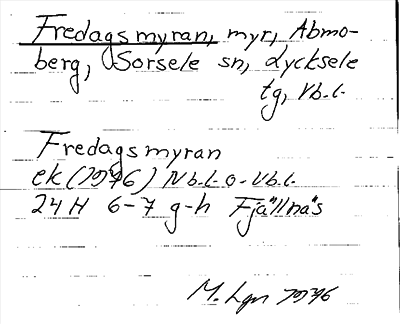 Fredagsmyran, myr, Abmo-
berg, Sorsele sn, Lycksele
tg, Vb.l.
Fredagsmyran
ek (1976) Nb.l.o.Vb.l.
24H 6-7 g-h Fjällnäs
M. Lgn 1976